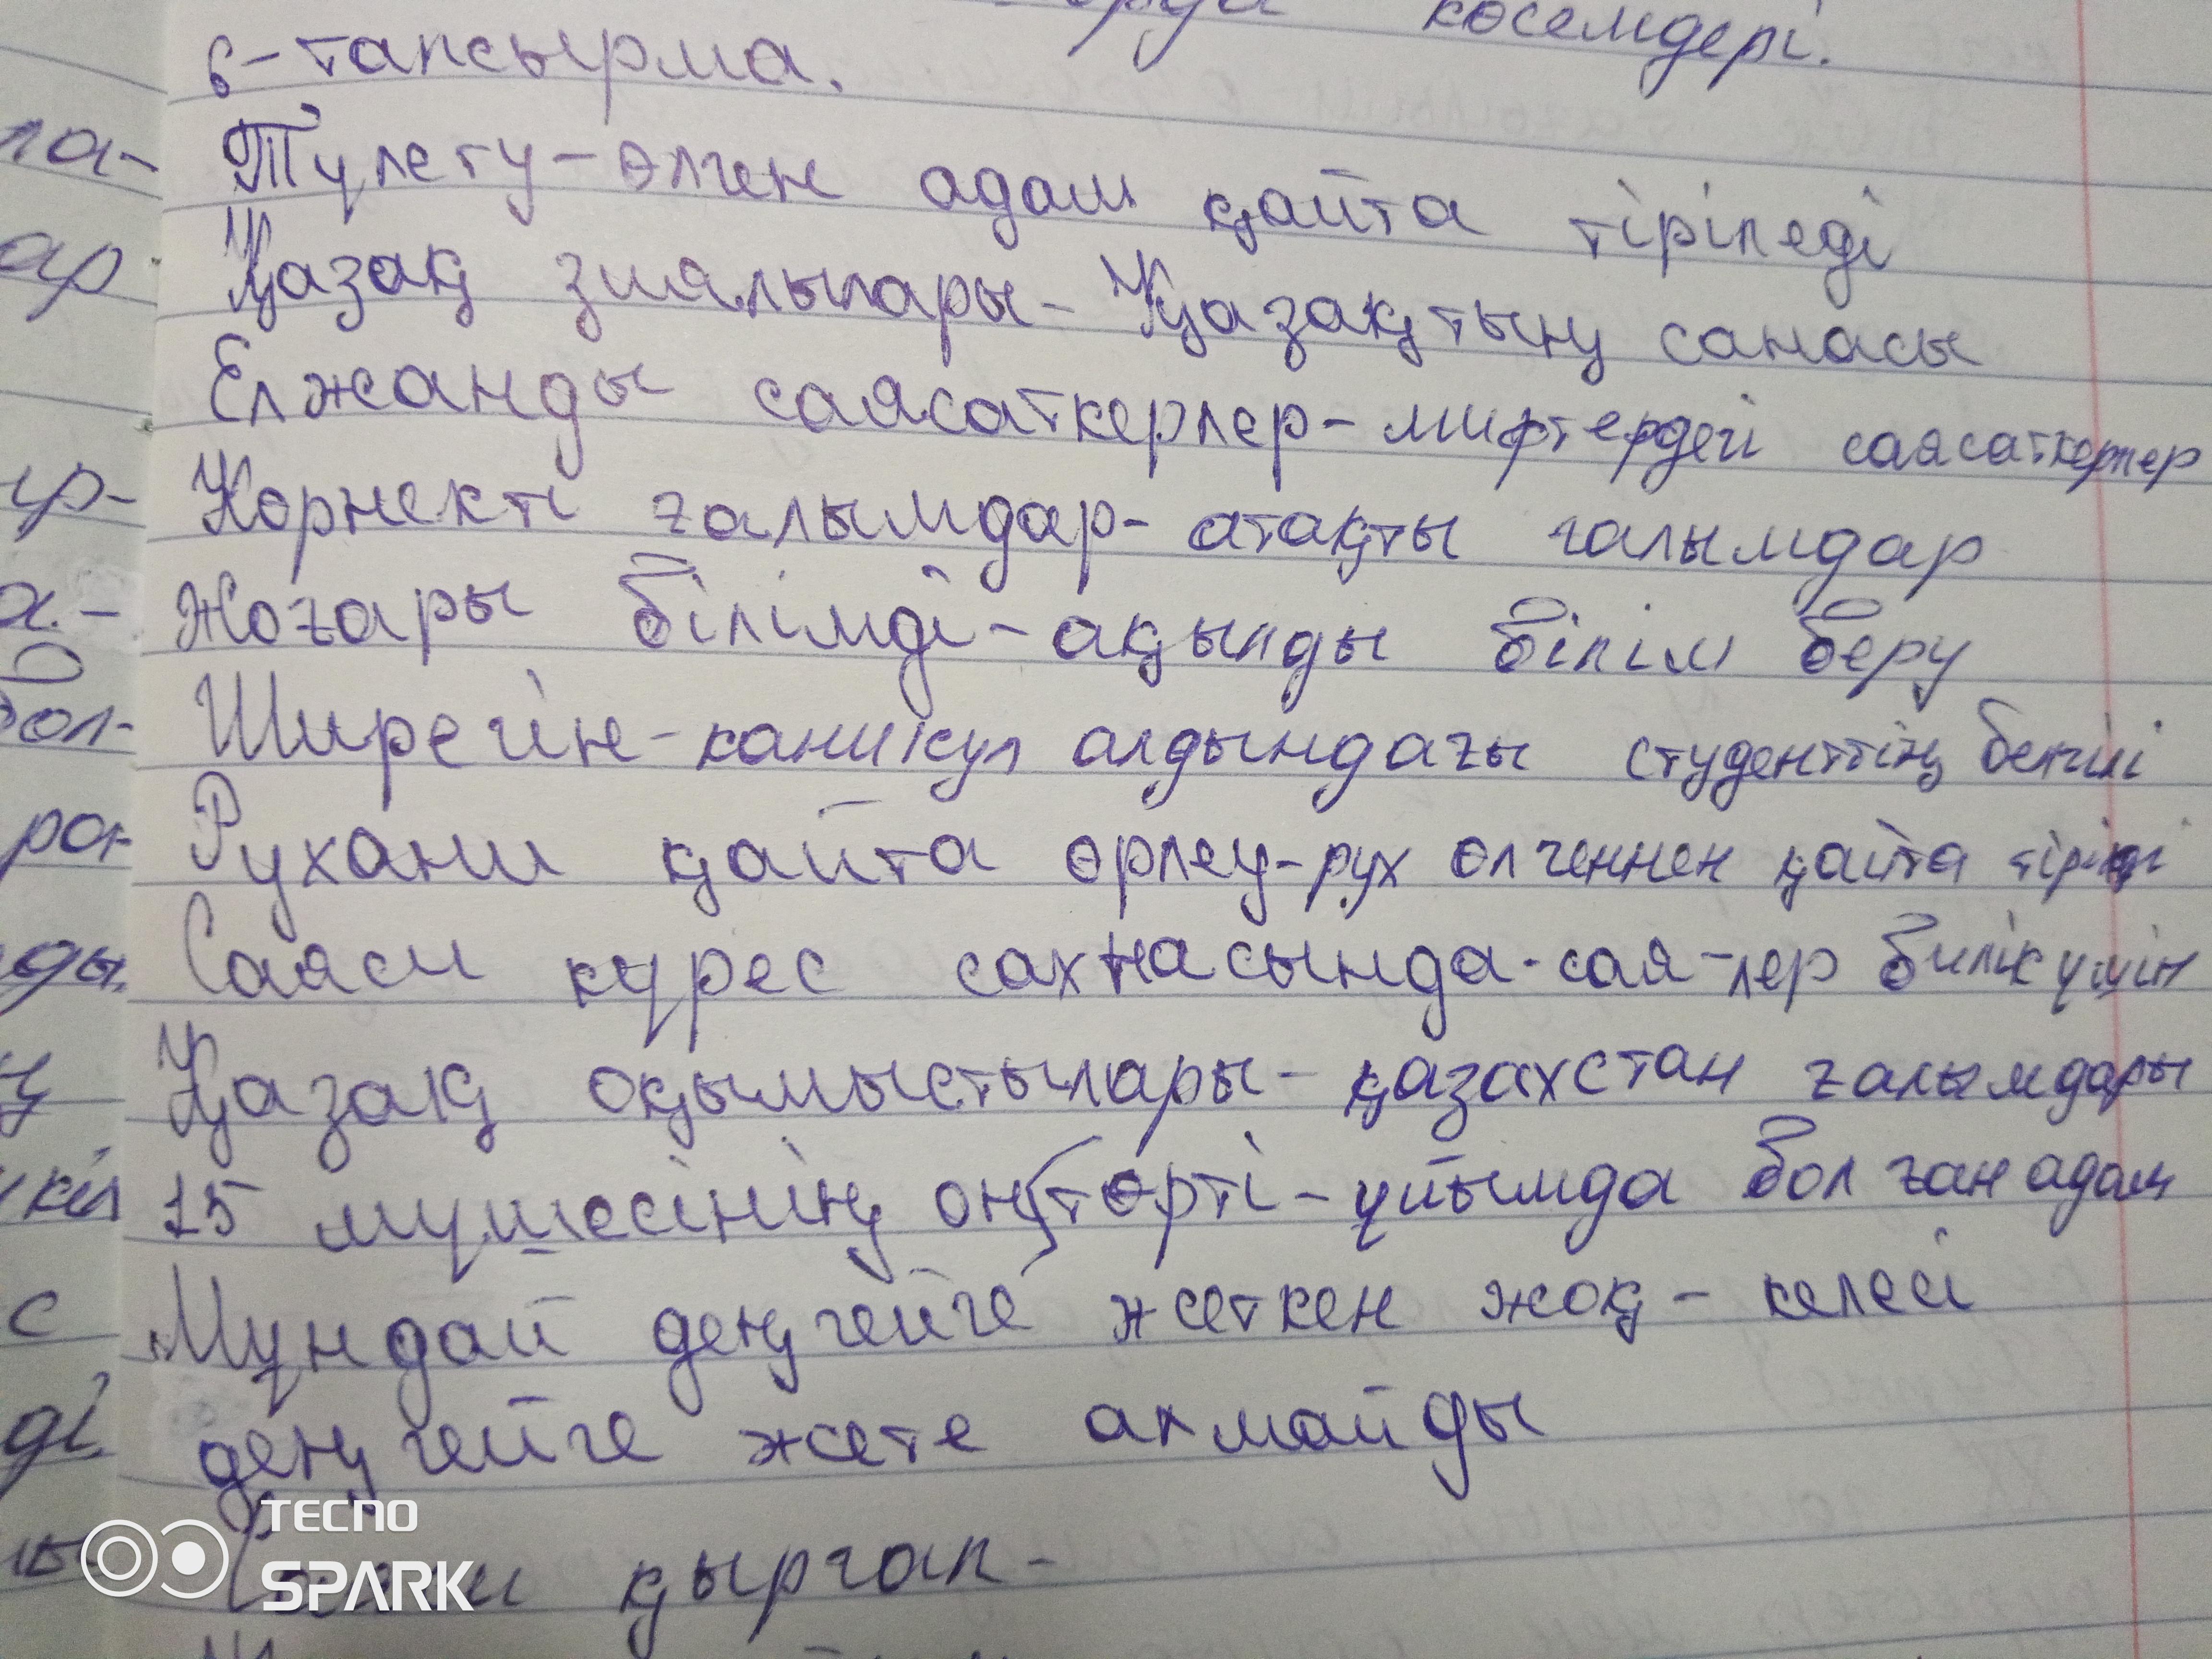 көсемдері.
6-тапсырма.
па-
Түлету-өлген адам қайта тіріледі
ар
Қазақ зиялылары-Қазақтың санасы
Елжанды саясаткерлер-мифтердегі саясаткерлер
ір-
Көрнекті ғалымдар-атақты ғалымдар
а.-
Жоғары білімді-ақылды білім беру
бол-
Ширегін-каникул алдындағы студенттің белгілі
рағ
Рухани қайта өрлеу-рух өлгеннен қайта тірілді
Саяси күрес сахнасында-сая-лер билік үшін
ды.
Қазақ оқымыстылары-қазахстан ғалымдары
15 мүшесінің он төрті-ұйымда болған адам
кіл
Мұндай деңгейге жеткен жоқ-келесі
с
деңгейге жете алмайды
ді.
TECNO
SPARK
қырғап-